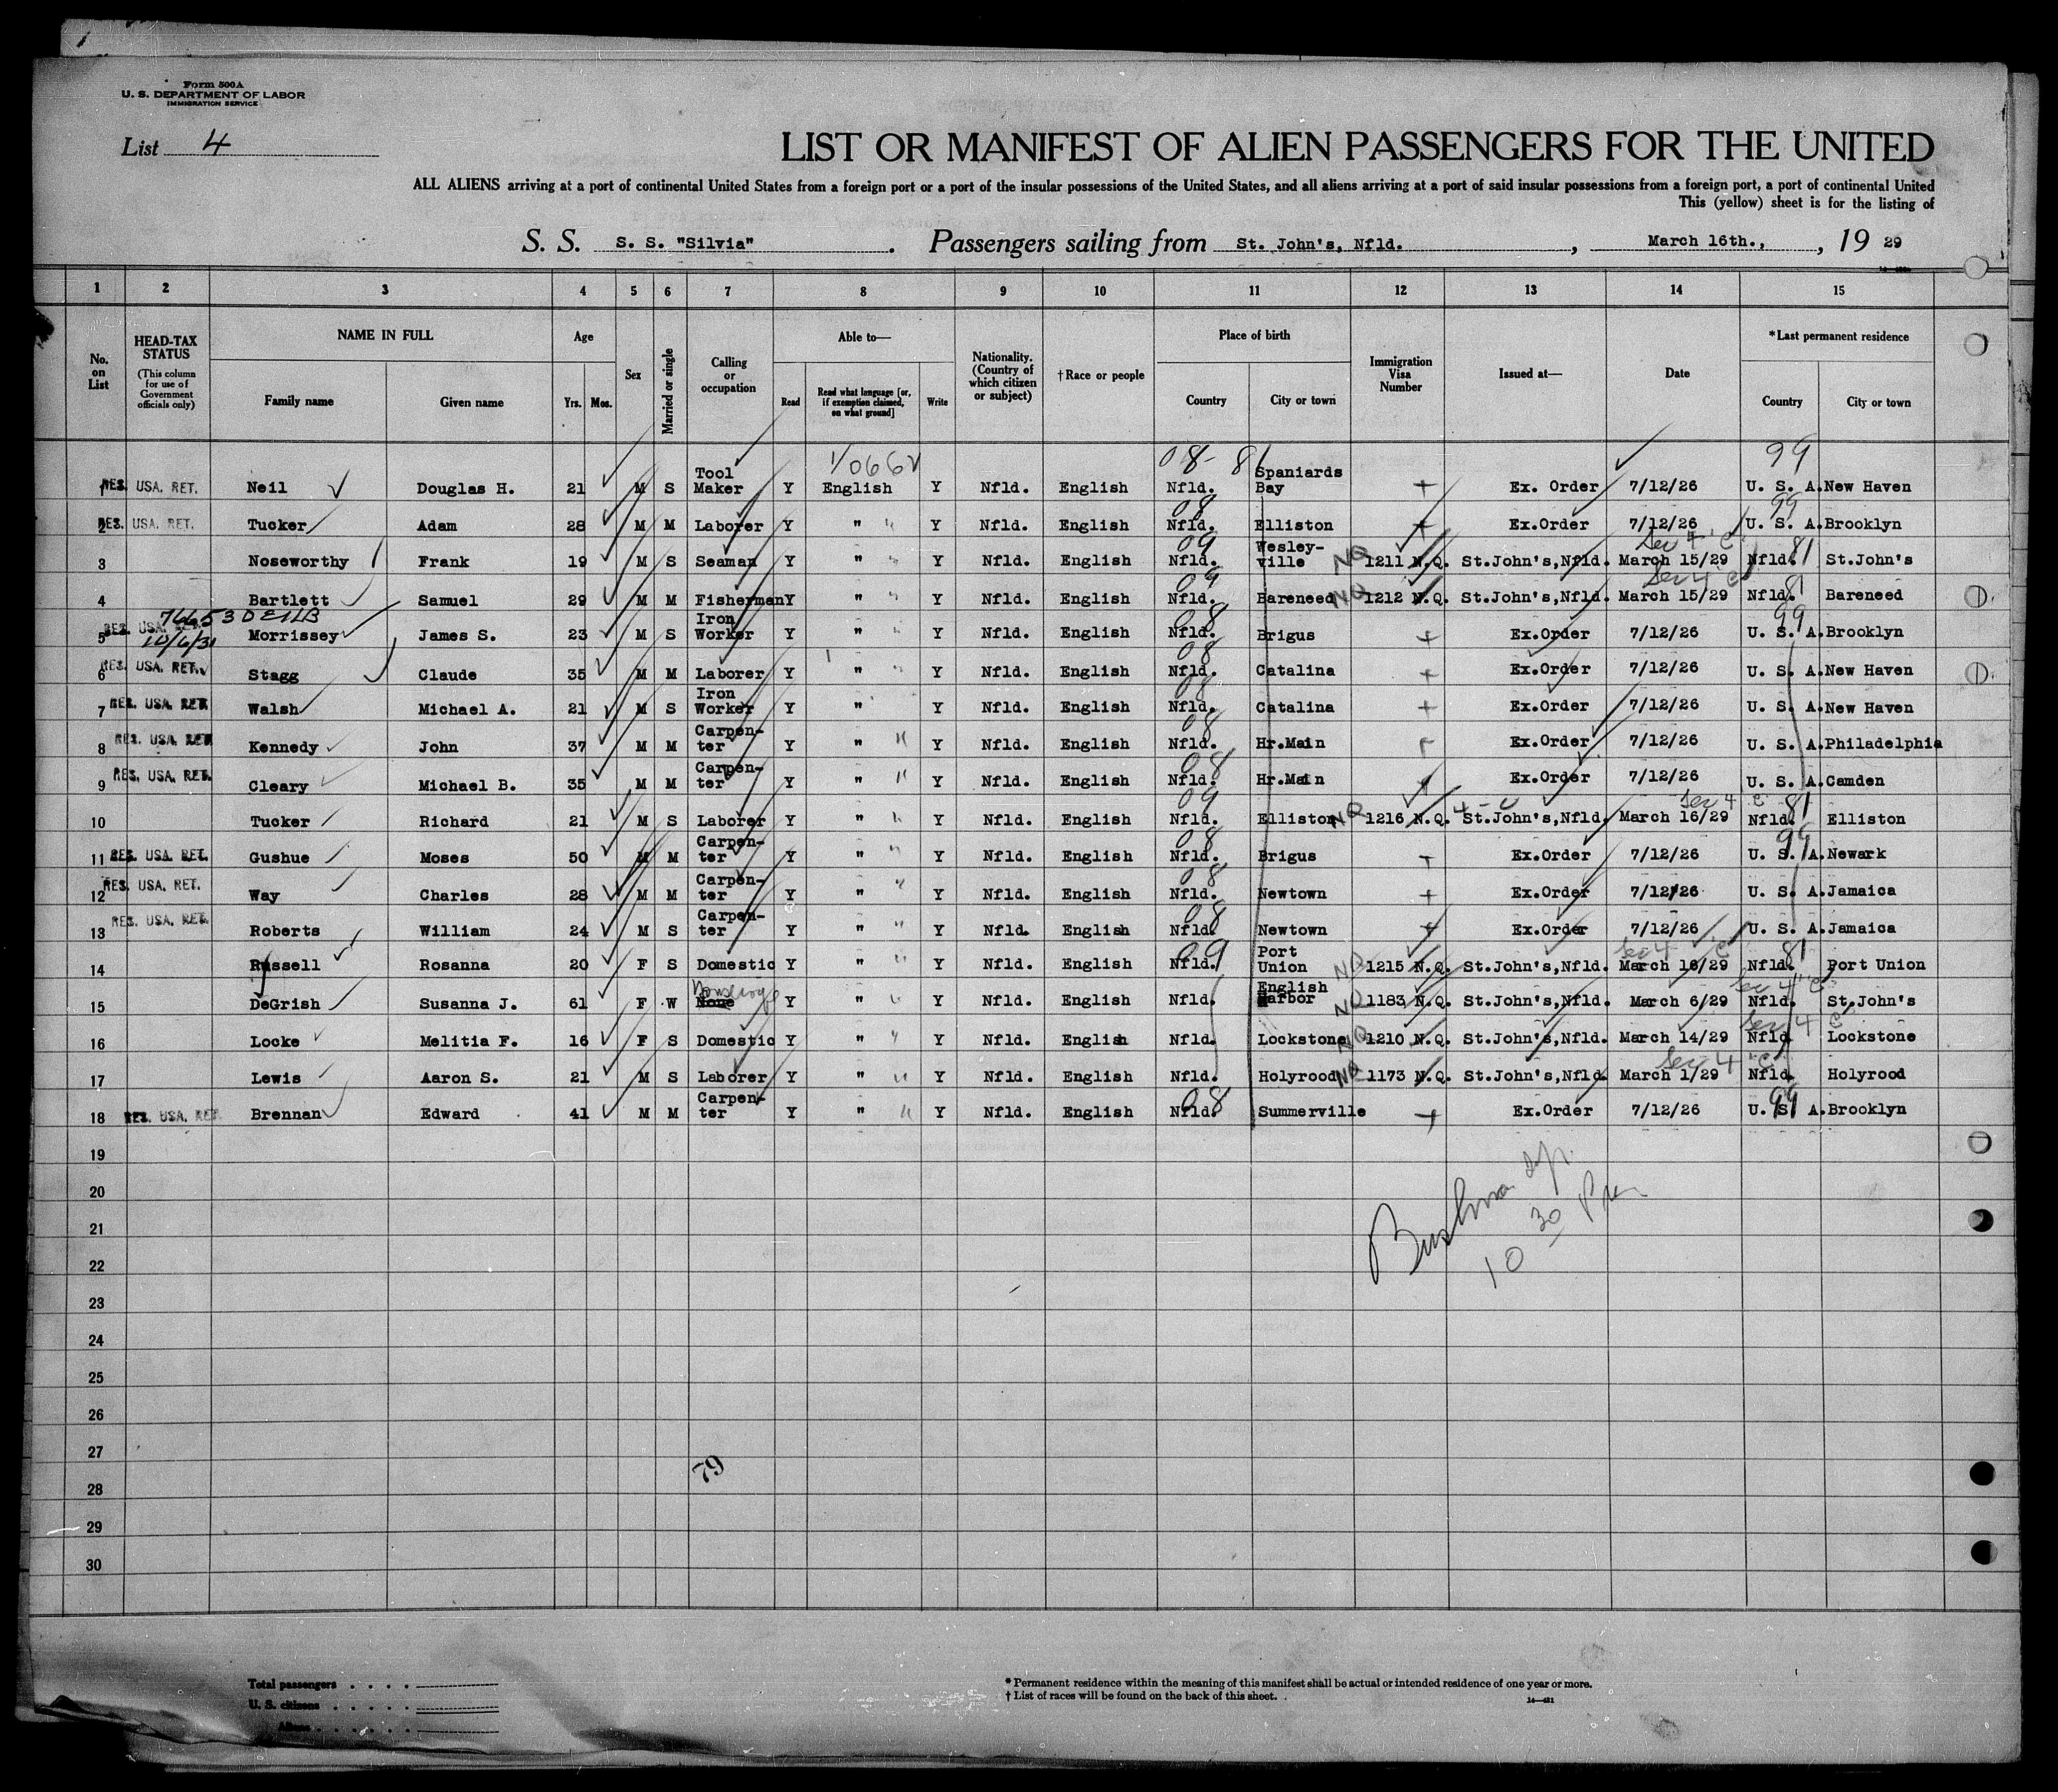 Form 500A
U. S. DEPARTMENT OF LABOR
IMMIGRATION SERVICE
List 4
LIST OR MANIFEST OF ALIEN PASSENGERS FOR THE UNITED
ALL ALIENS arriving at a port of continental United States from a foreign port or a port of the insular possessions of the United States, and all aliens arriving at a port of said insular possessions from a foreign port, a port of continental United
This (yellow) sheet is for the listing of
S. S. S. S. "Silvia" . Passengers sailing from St. John's, Nfld. , March 16th., , 19 29
1 2 3 4 5 6 7 8 9 10 11 12 13 14 15
No. on List
HEAD-TAX STATUS
(This column for use of Government officials only)
NAME IN FULL
Family name Given name
Age
Yrs. Mos.
Sex
Married or single
Calling or occupation
Able to—
Read Read what language [or, if exemption claimed, on what ground] Write
Nationality. (Country of which citizen or subject)
†Race or people
Place of birth
Country City or town
Immigration Visa Number
Issued at—
Date
*Last permanent residence
Country City or town
08- 81 99
1 RES. USA. RET. Neil Douglas H. 21 M S Tool Maker Y English Y Nfld. English Nfld. Spaniards Bay + Ex. Order 7/12/26 U. S. A. New Haven
08 99
2 RES. USA. RET. Tucker Adam 28 M M Laborer Y " " Y Nfld. English Nfld. Elliston + Ex.Order 7/12/26 U. S. A. Brooklyn
09 Sec 4 "C" 81
3 Noseworthy Frank 19 M S Seaman Y " " Y Nfld. English Nfld. Wesley-ville NQ 1211 N.Q. St.John's,Nfld. March 15/29 Nfld. St.John's
09 Sec 4 C 81
4 Bartlett Samuel 29 M M Fisherman Y " " Y Nfld. English Nfld. Bareneed NQ 1212 N.Q. St.John's,Nfld. March 15/29 Nfld. Bareneed
08 99
10/6/31
5 RES. USA. Morrissey James S. 23 M S Iron Worker Y " " Y Nfld. English Nfld. Brigus + Ex.Order 7/12/26 U. S. A. Brooklyn
08
6 RES. USA. RET. Stagg Claude 35 M M Laborer Y " " Y Nfld. English Nfld. Catalina + Ex.Order 7/12/26 U. S. A. New Haven
08
7 RES. USA. RET. Walsh Michael A. 21 M S Iron Worker Y " " Y Nfld. English Nfld. Catalina + Ex.Order 7/12/26 U. S. A. New Haven
08
8 RES. USA. RET. Kennedy John 37 M M Carpen-ter Y " " Y Nfld. English Nfld. Hr.Main Ex.Order 7/12/26 U. S. A. Philadelphia
08
9 RES. USA. RET. Cleary Michael B. 35 M M Carpen-ter Y " " Y Nfld. English Nfld. Hr.Main + Ex.Order 7/12/26 U. S. A. Camden
09 Sec 4 C 81
10 Tucker Richard 21 M S Laborer Y " " Y Nfld. English Nfld. Elliston NQ 1216 N.Q. St.John's,Nfld. March 16/29 Nfld. Elliston
08 99
11 RES. USA. RET. Gushue Moses 50 M M Carpen-ter Y " " Y Nfld. English Nfld. Brigus + Ex.Order 7/12/26 U. S. A. Newark
08
12 RES. USA. RET. Way Charles 28 M M Carpen-ter Y " " Y Nfld. English Nfld. Newtown + Ex.Order 7/12/26 U. S. A. Jamaica
08
13 RES. USA. RET. Roberts William 24 M S Carpen-ter Y " " Y Nfld. English Nfld. Newtown + Ex.Order 7/12/26 U. S. A. Jamaica
09 Sec 4 "C" 81
14 Russell Rosanna 20 F S Domestic Y " " Y Nfld. English Nfld. Port Union NQ 1215 N.Q. St.John's,Nfld. March 16/29 Nfld. Port Union
Sec 4 "C"
15 DeGrish Susanna J. 61 F W None Y " " Y Nfld. English Nfld. English Harbor NQ 1183 N.Q. St.John's,Nfld. March 6/29 Nfld. St.John's
Sec 4 C
16 Locke Melitia F. 16 F S Domestic Y " " Y Nfld. English Nfld. Lockstone NQ 1210 N.Q. St.John's,Nfld. March 14/29 Nfld. Lockstone
Sec 4 "C"
17 Lewis Aaron S. 21 M S Laborer Y " " Y Nfld. English Nfld. Holyrood NQ 1173 N.Q. St.John's,Nfld. March 1/29 Nfld. Holyrood
08 99
18 RES. USA. RET. Brennan Edward 41 M M Carpen-ter Y " " Y Nfld. English Nfld. Summerville + Ex.Order 7/12/26 U. S. A. Brooklyn
19
20
21
10 30
22
23
24
25
26
27
79
28
29
30
Total passengers
U. S. citizens
Aliens
* Permanent residence within the meaning of this manifest shall be actual or intended residence of one year or more.
† List of races will be found on the back of this sheet.